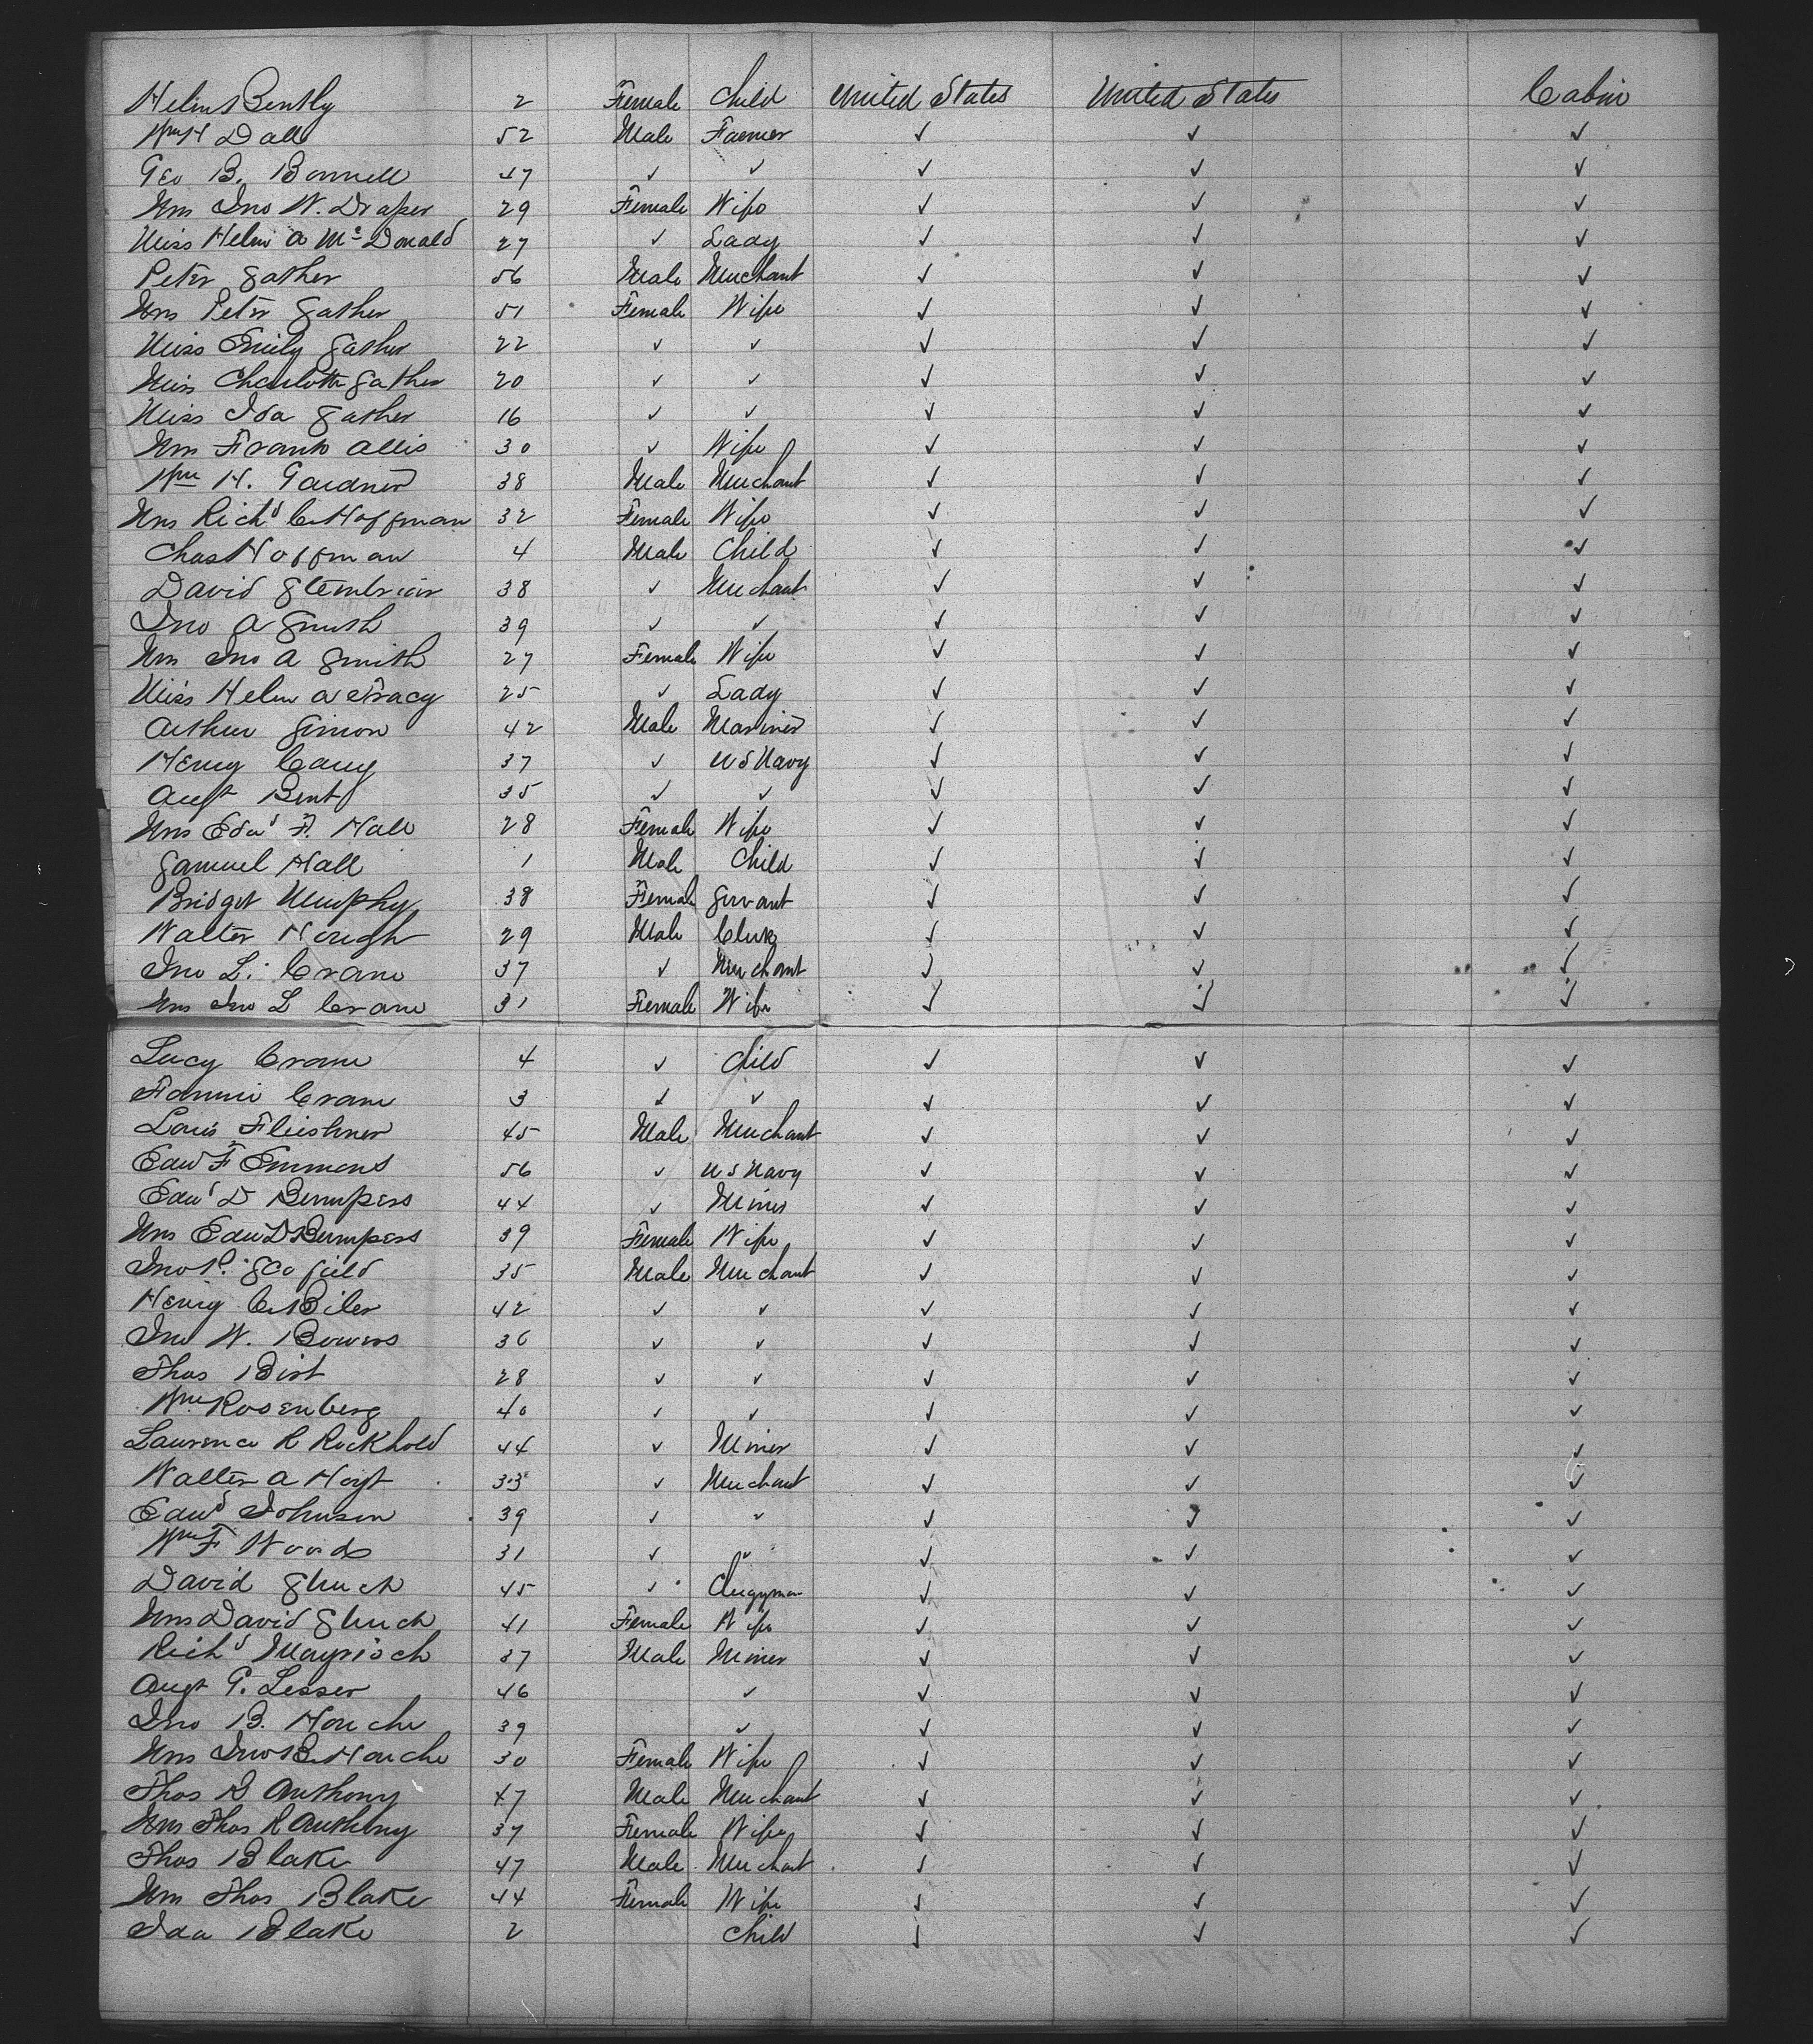 Helen Bently 2 Female Child United States United States Cabin
Wm H Dall 52 Male Farmer ✓ ✓ ✓
Geo B. Bonnell 47 ✓ ✓ ✓ ✓ ✓
Mrs Jno W. Draper 29 Female Wife ✓ ✓ ✓
Miss Helen A McDonald 27 ✓ Lady ✓ ✓ ✓
Peter Sather 56 Male Merchant ✓ ✓ ✓
Mrs Peter Sather 51 Female Wife ✓ ✓ ✓
Miss Emily Sather 22 ✓ ✓ ✓ ✓ ✓
Miss Charlotte Sather 20 ✓ ✓ ✓ ✓ ✓
Miss Ida Sather 16 ✓ ✓ ✓ ✓ ✓
Mrs Frank Allis 30 ✓ Wife ✓ ✓ ✓
Wm H. Gardner 38 Male Merchant ✓ ✓ ✓
Mrs Richd C. Hoffman 32 Female Wife ✓ ✓ ✓
Chas Hoffman 4 Male Child ✓ ✓ ✓
David 38 ✓ Merchant ✓ ✓ ✓
Jno A Smith 39 ✓ ✓ ✓ ✓ ✓
Mrs Jno A Smith 27 Female Wife ✓ ✓ ✓
Miss Helen A Tracy 25 ✓ Lady ✓ ✓ ✓
Arthur Simon 42 Male Mariner ✓ ✓ ✓
Henry Carey 37 ✓ U S Navy ✓ ✓ ✓
Augt Bent 35 ✓ ✓ ✓ ✓ ✓
Mrs Edwd F. Hall 28 Female Wife ✓ ✓ ✓
Samuel Hall 1 Male Child ✓ ✓ ✓
Bridget Murphy 38 Female Servant ✓ ✓ ✓
Walter Hough 29 Male Clerk ✓ ✓ ✓
Jno L. Crane 37 ✓ Merchant ✓ ✓ ✓
Mrs Jno L Crane 31 Female Wife ✓ ✓ ✓
Lucy Crane 4 ✓ Child ✓ ✓ ✓
Fannie Crane 3 ✓ ✓ ✓ ✓ ✓
Louis Fleishner 45 Male Merchant ✓ ✓ ✓
Edw F Emmons 56 ✓ U S Navy ✓ ✓ ✓
Edwd D Bumpers 44 ✓ Miner ✓ ✓ ✓
Mrs Edw D Bumpers 39 Female Wife ✓ ✓ ✓
Jno P. Scofield 35 Male Merchant ✓ ✓ ✓
Henry C. Biler 42 ✓ ✓ ✓ ✓ ✓
Jno W. Bowers 36 ✓ ✓ ✓ ✓ ✓
Thos Bist 28 ✓ ✓ ✓ ✓ ✓
Wm Rosenberg 40 ✓ ✓ ✓ ✓ ✓
Laurence R Rockhold 44 ✓ Miner ✓ ✓ ✓
Walter A Hoyt 33 ✓ Merchant ✓ ✓ ✓
Edwd Johnson 39 ✓ ✓ ✓ ✓ ✓
Wm F Woods 31 ✓ ✓ ✓ ✓ ✓
David Shuck 45 ✓ Clergyman ✓ ✓ ✓
Mrs David Shuck 41 Female Wife ✓ ✓ ✓
Richd Mayrisch 37 Male Miner ✓ ✓ ✓
Augt G. Lesser 46 ✓ ✓ ✓ ✓
Jno B. Houche 39 ✓ ✓ ✓ ✓
Mrs Jno B. Houche 30 Female Wife ✓ ✓ ✓
Thos R Anthony 47 Male Merchant ✓ ✓ ✓
Mrs Thos R Anthony 37 Female Wife ✓ ✓ ✓
Thos Blake 47 Male Merchant ✓ ✓ ✓
Mrs Thos Blake 44 Female Wife ✓ ✓ ✓
Ida Blake 2 Child ✓ ✓ ✓